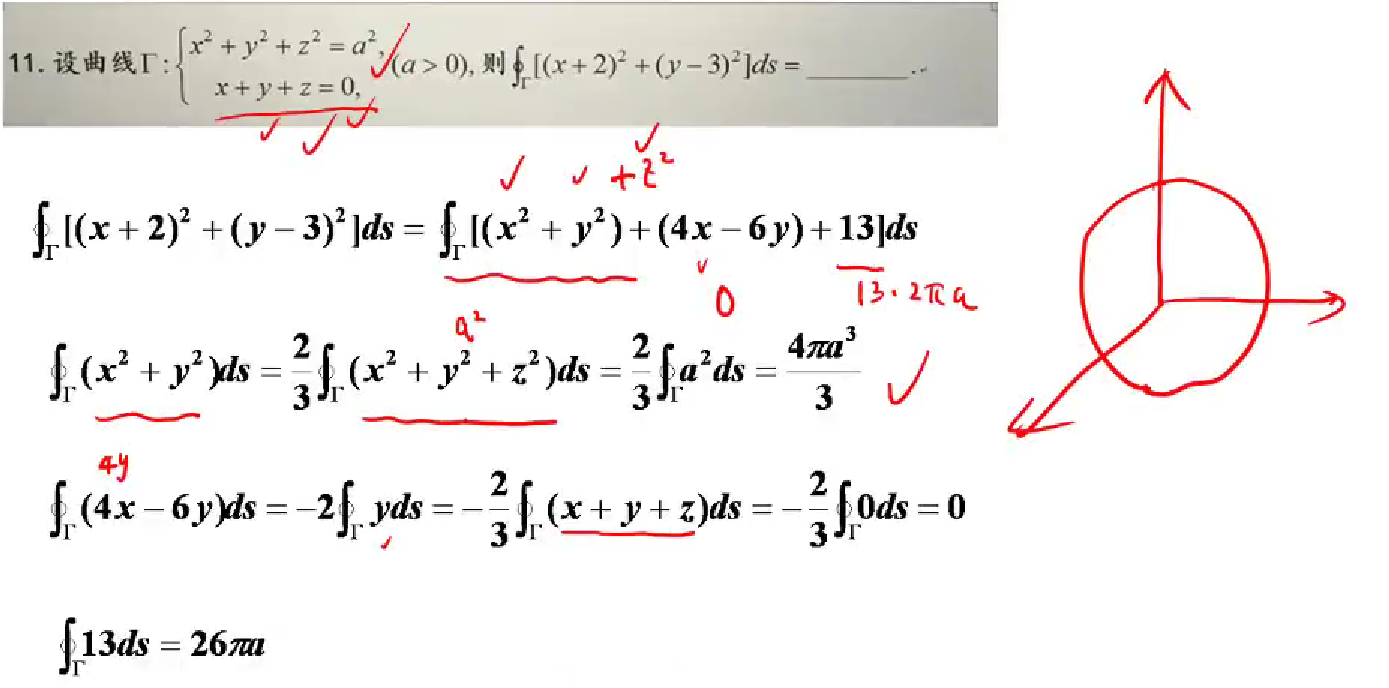 11. 设曲线Γ: { x² + y² + z² = a², (a > 0), 则 ∮_Γ [(x + 2)² + (y − 3)²]ds = ________.
x + y + z = 0,
+z²
∮_Γ [(x + 2)² + (y − 3)²]ds = ∮_Γ [(x² + y²) + (4x − 6y) + 13]ds
0 13·2πa
a²
∮_Γ (x² + y²)ds = 2/3 ∮_Γ (x² + y² + z²)ds = 2/3 ∮_Γ a²ds = 4πa³/3
4y
∮_Γ (4x − 6y)ds = −2∮_Γ yds = −2/3 ∮_Γ (x + y + z)ds = −2/3 ∮_Γ 0ds = 0
∮_Γ 13ds = 26πa